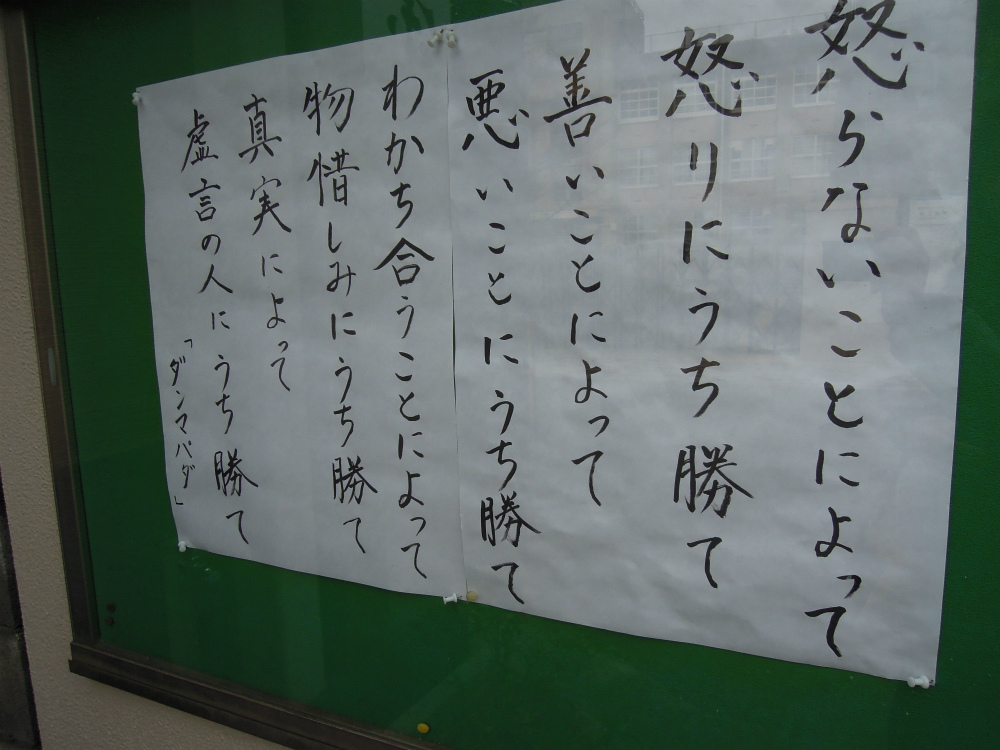 怒らないことによって
怒りにうち勝て
善いことによって
悪いことにうち勝て
わかち合うことによって
物惜しみにうち勝て
真実によって
虚言の人にうち勝て
「ダンマパダ」